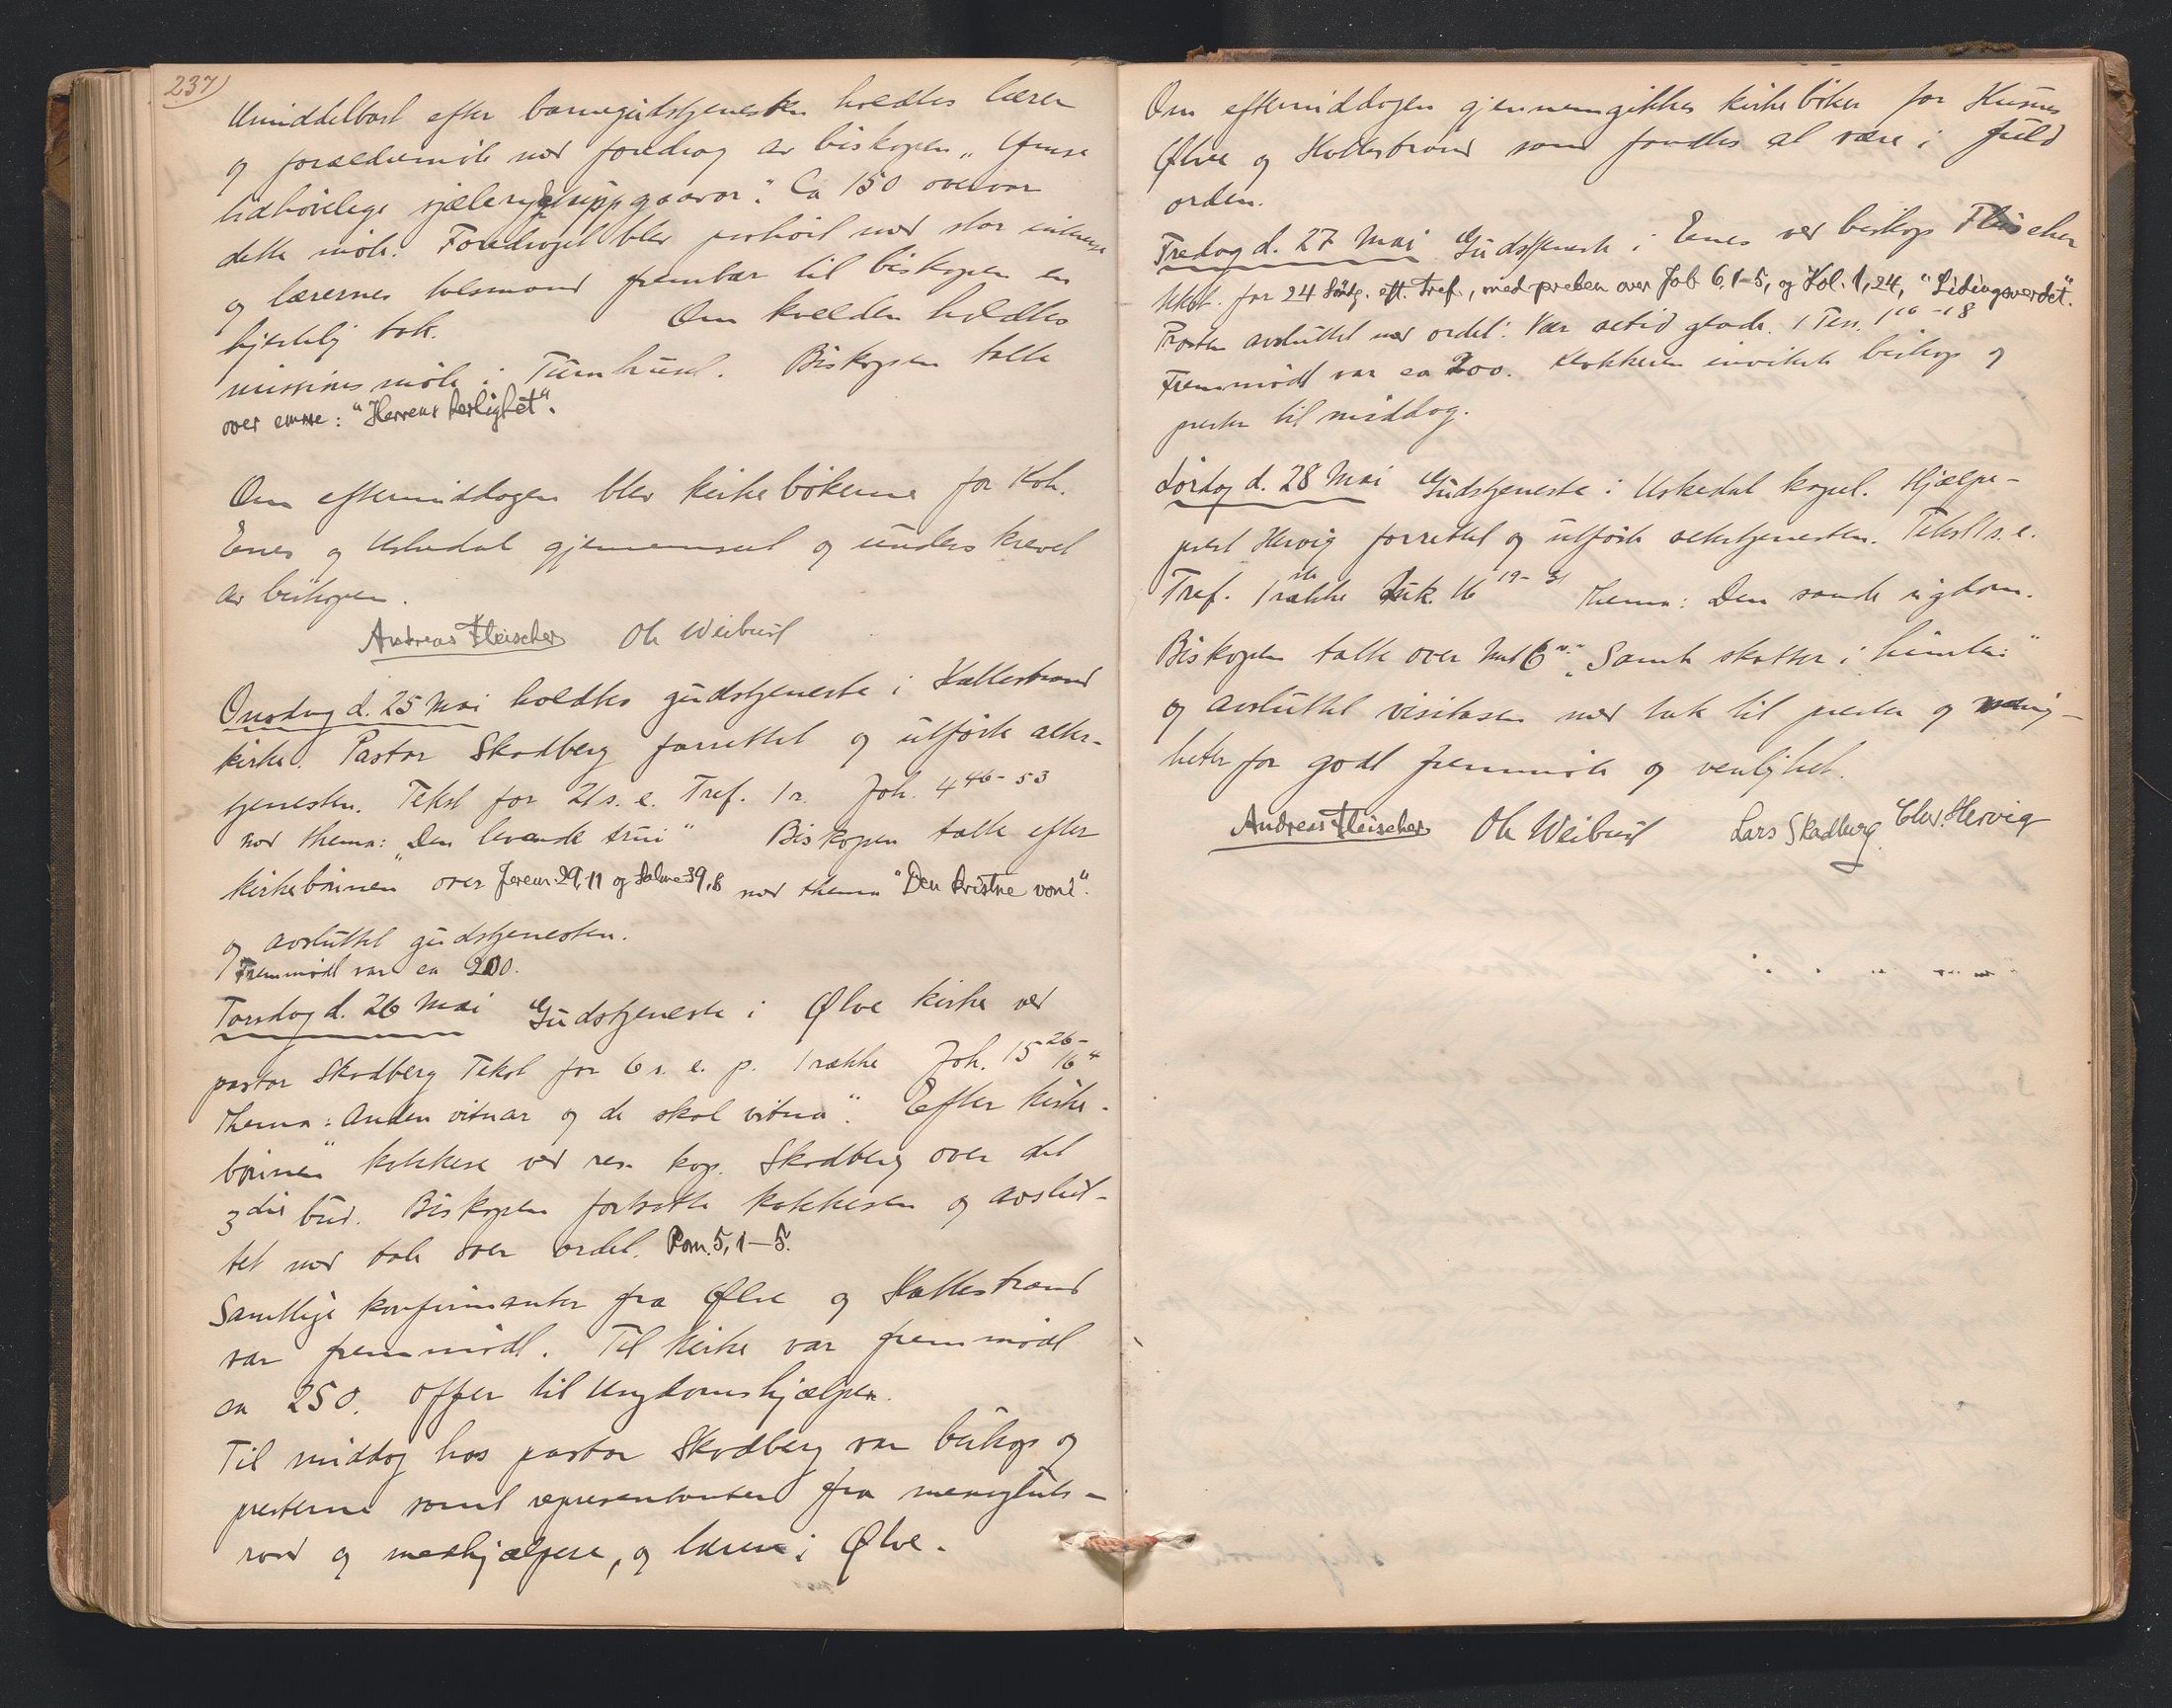 237)
Umiddelbart efter barnegudstjenesten holdtes lærer
og forældremöte med foredrag av biskopen „Ymse
tidhövelege sjælerygtsuppgaavor". Ca 150 overvar
dette möte. Foredraget blev paahört med stor interesse
og lærernes talsmand frembar til biskopen en
hjertelig tak. Om kvelden holdtes
missionsmöte i Turnhuset. Biskopen talte
over emne: "Herrens herlighet".
Om eftermiddagen blev kirkebökerne for Kvh.
Enes og Uskedal gjennemset og underskrevet
av biskopen.
Andreas Fleischer Ole Weibust
Onsdag d. 25 Mai holdtes gudstjeneste i Hattestrand
kirke. Pastor Skadberg forrettet og utförte alter-
tjenesten. Tekst for 21 s. e. Tref. 1 r. Joh. 4 46-53
med thema: „Den levande trui" Biskopen talte efter
kirkebönnen over Jerem. 29,11 og Salme 39,8 med thema "Den kristne voni".
og avsluttet gudstjenesten.
Fremmödt var ca 200.
Torsdag d. 26 Mai Gudstjeneste i Ølve kirke ved
pastor Skadberg Tekst for 6 s. e. p. 1 række Joh. 15 26-
16 4
Thema: Anden vitnar og de skal vitna". Efter kirke-
bönnen katekese ved res. kap. Skadberg over det
3die bud. Biskopen fortsatte katekesen og avslut-
tet med tale over ordet. Rom. 5, 1-5.
Samtlige konfirmanter fra Ølve og Hattestrand
var fremmödt. Til kirke var fremmödt
ca 250. Offer til Ungdomshjælpen.
Til middag hos pastor Skadberg var biskop og
presterne samt representanter fra menighets-
raad og medhjælpere, og lærere i Ølve.
Om eftermiddagen gjennemgikkes kirkeböker for Husnes
Ølve og Hattestrand som fandtes at være i fuld
orden.
Fredag d. 27 Mai Gudstjeneste i Enes ved biskop Fleischer
tekst. for 24 Söndg. eft. Tref., med preken over Job 6,1-5, og Kol. 1,24, "Lidingsverdet".
Prosten avsluttet med ordet: Vær altid glade. 1 Tess. 5 16-18
Fremmödt var ca 200. Klokkeren inviterte biskop og
prester til middag.
Lördag d. 28 Mai Gudstjeneste i Uskedal kapel. Hjælpe-
prest Hervig forrettet og utförte altertjenesten. Tekst 1 s. e.
Tref. 1ste række Luk. 16 19-31 Thema: Den sande rigdom.
Biskopen talte over Mat 6 „Samle skatter i himlen"
og avsluttet visitasen med tak til prester og menig-
heter for godt fremmöte og venlighet.
Andreas Fleischer Ole Weibust Lars Skadberg. Chr. Hervig